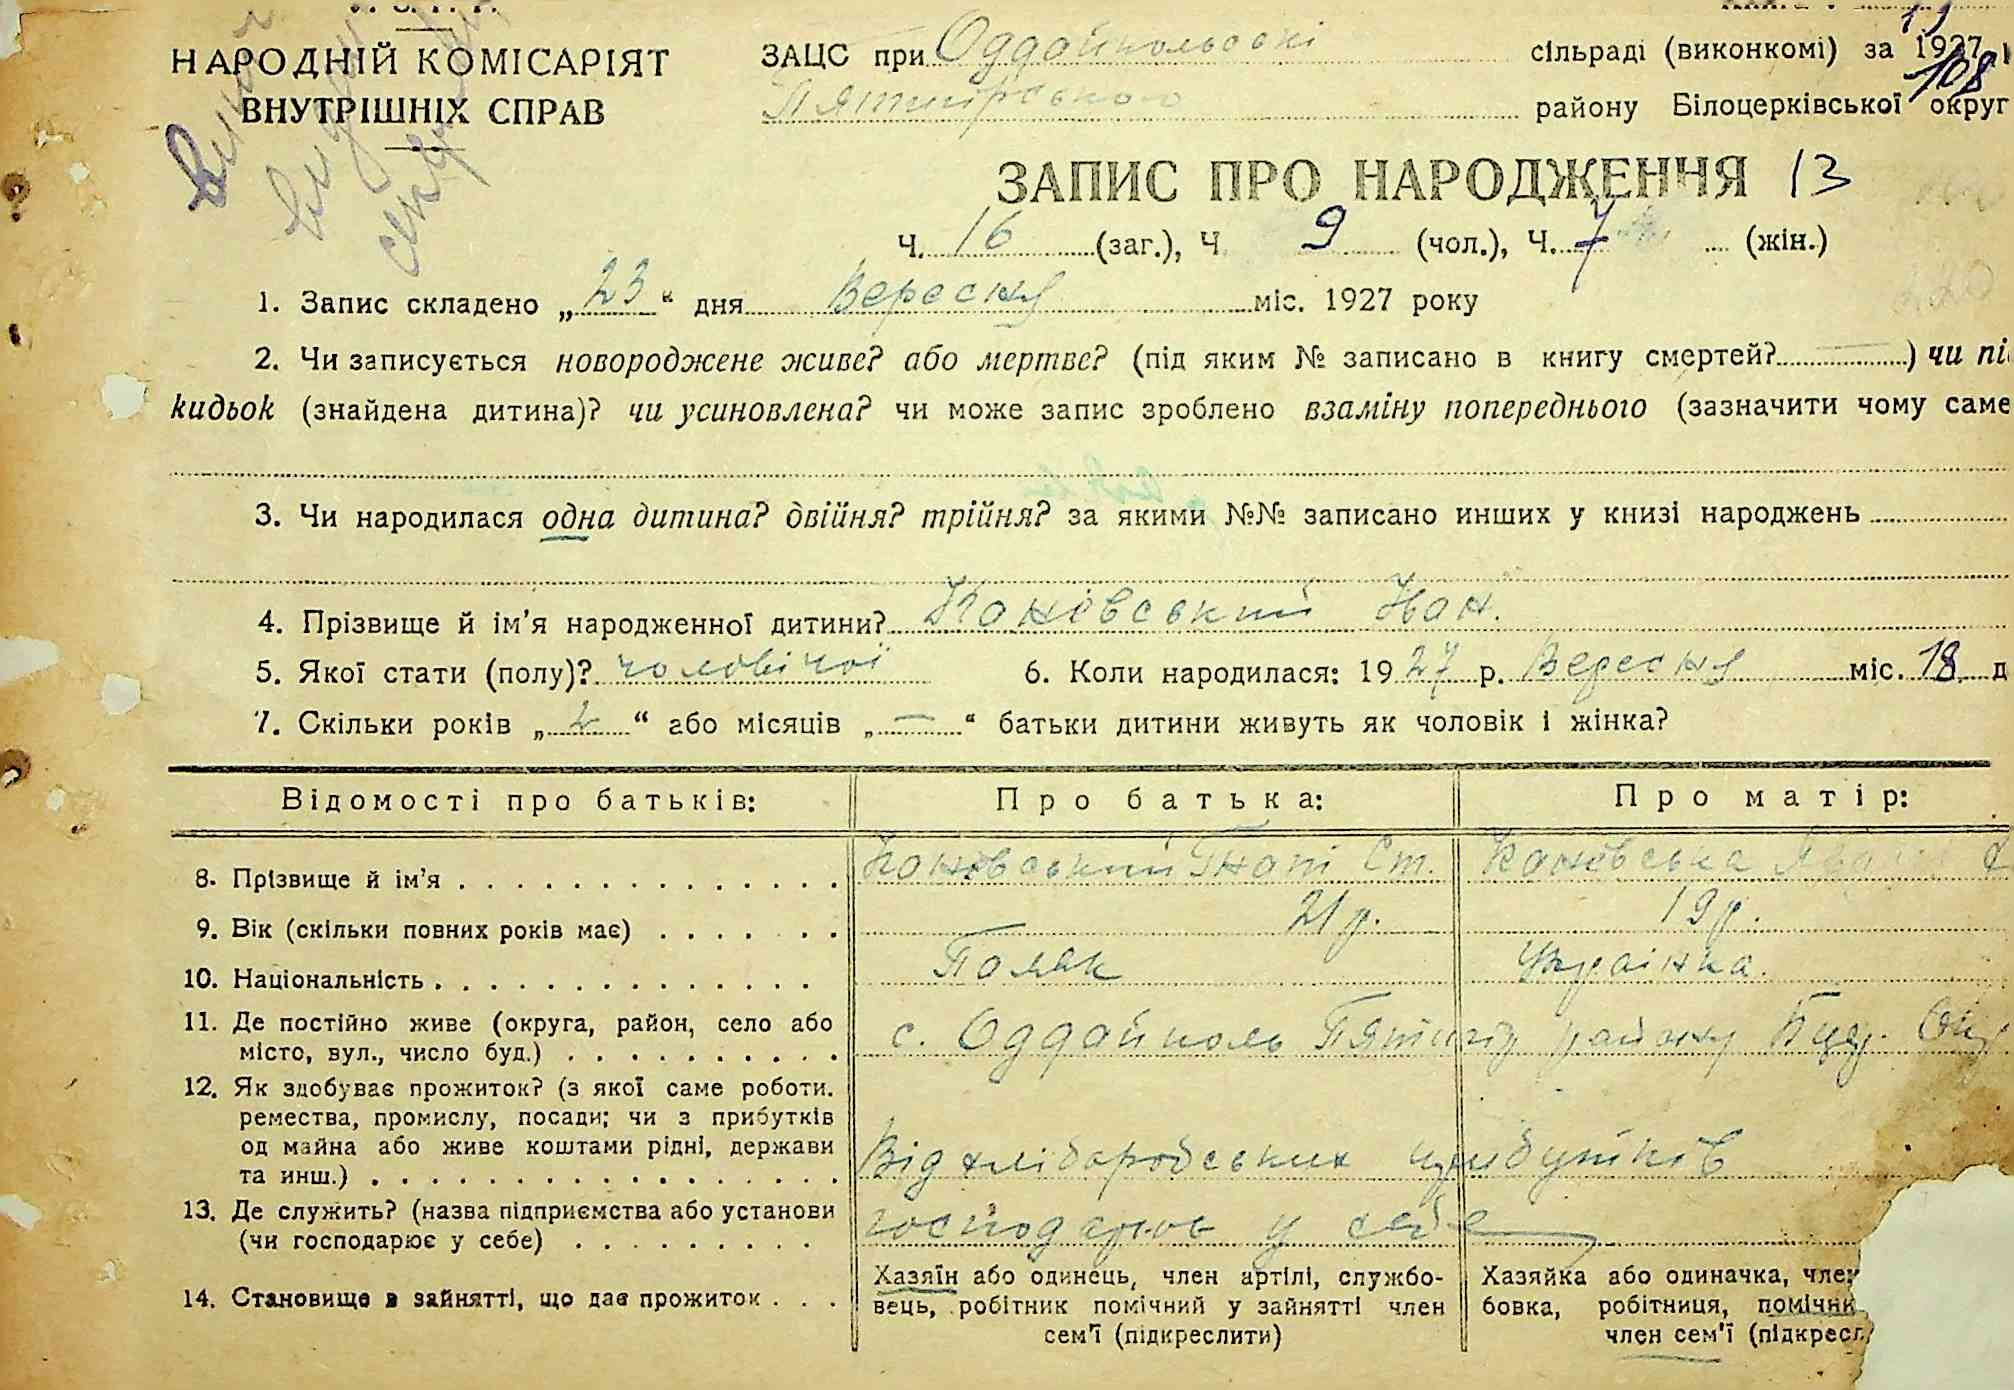 НАРОДНІЙ КОМІСАРІЯТ
ВНУТРІШНІХ СПРАВ
ЗАЦС при Оддайпольській сільраді (виконкомі) за 1927
Пятигірського району Білоцерківської округ
108
ЗАПИС ПРО НАРОДЖЕННЯ 13
Ч. 16 (заг.), Ч 9 (чол.), Ч. 7 (жін.)
1. Запис складено „23“ дня Вересня міс. 1927 року
2. Чи записується новороджене живе? або мертве? (під яким № записано в книгу смертей? —) чи пі
кидьок (знайдена дитина)? чи усиновлена? чи може запис зроблено взаміну попереднього (зазначити чому саме
3. Чи народилася одна дитина? двійня? трійня? за якими №№ записано инших у книзі народжень
4. Прізвище й ім’я народженної дитини? Канівський Іван.
5. Якої стати (полу)? чоловічої 6. Коли народилася: 1927 р. Вересня міс. 18 д
7. Скільки років „2“ або місяців „—“ батьки дитини живуть як чоловік і жінка?
Відомості про батьків: Про батька: Про матір:
8. Прізвище й ім’я Канівський Гнат Ст. Канівська
9. Вік (скільки повних років має) 21 р. 19 р.
10. Національність Поляк Українка.
11. Де постійно живе (округа, район, село або
місто, вул., число буд.) с. Оддайполь Пятигір району Бцер. Окр
12. Як здобуває прожиток? (з якої саме роботи.
ремества, промислу, посади; чи з прибутків
од майна або живе коштами рідні, держави
та инш.) Від хліборобських прибутків
13. Де служить? (назва підприємства або установи
(чи господарює у себе) господарює у себе
14. Становище в зайнятті, що дає прожиток
Хазяїн або одинець, член артілі, службо-
вець, робітник помічний у зайнятті член
сем’ї (підкреслити)
Хазяйка або одиначка, член
бовка, робітниця, помічни
член сем’ї (підкресл